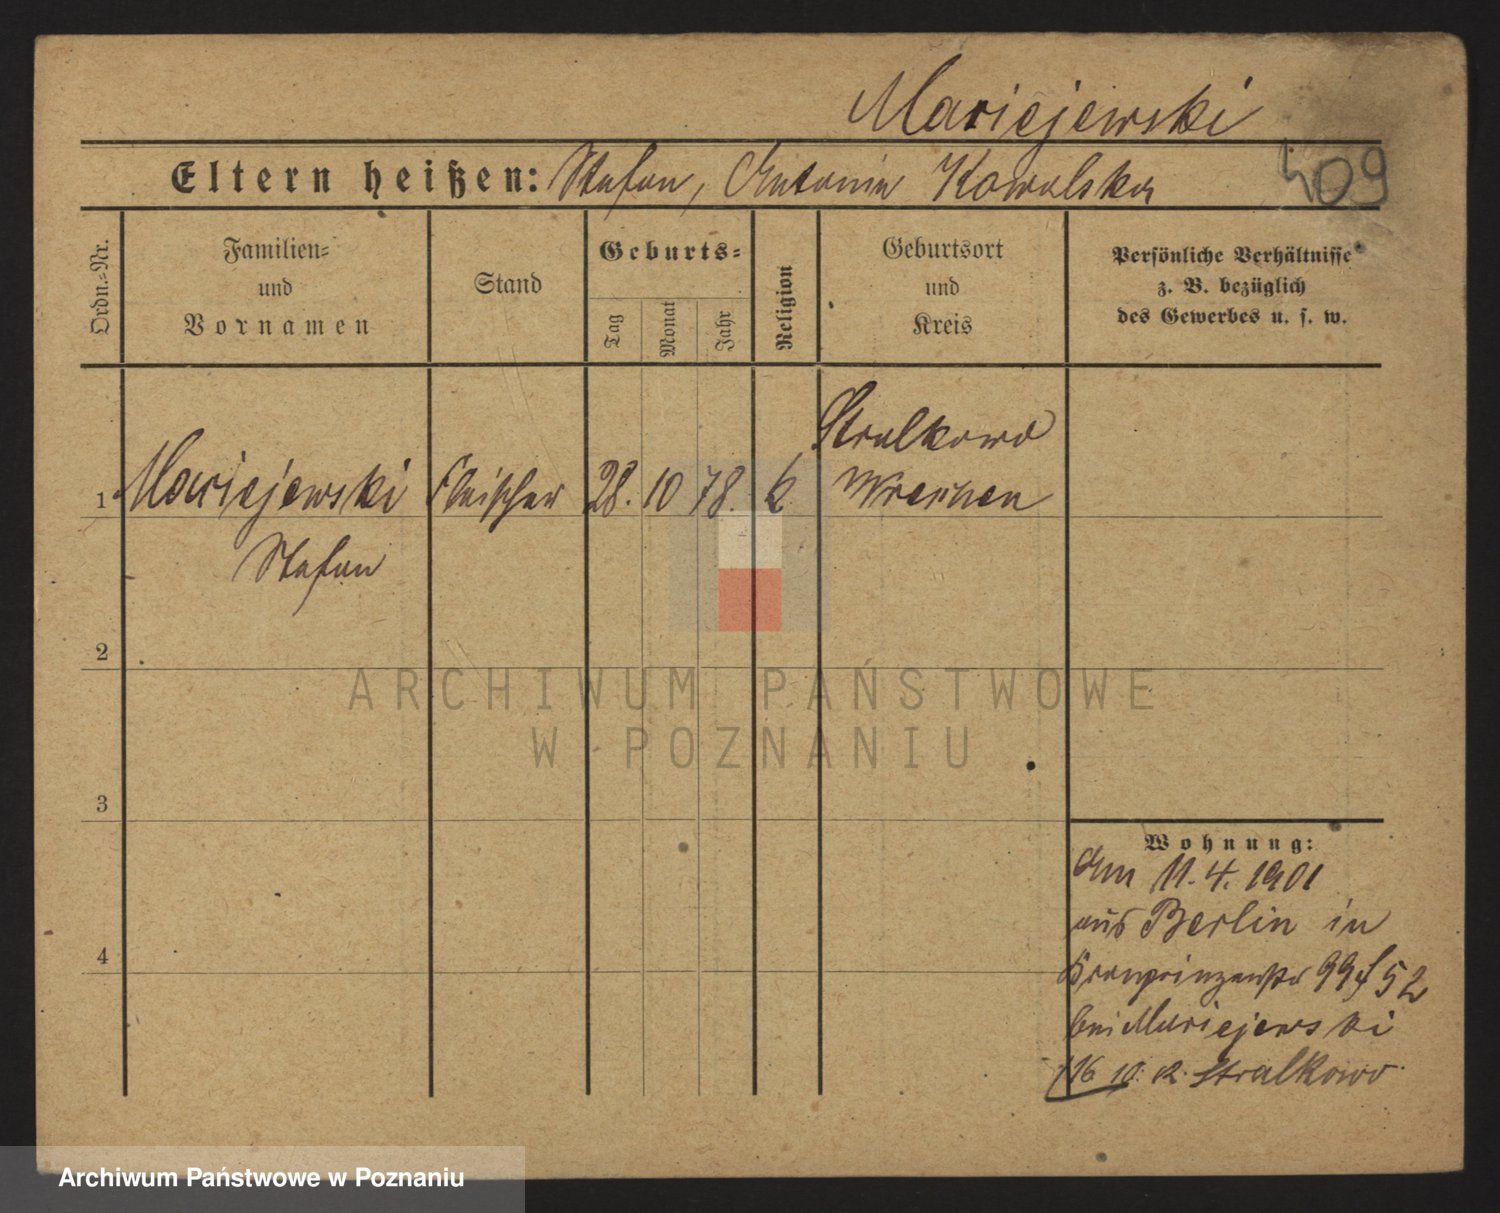 Mariejewski
Eltern heißen: Stefan, Antonin Kowalska
409
Ordn.-Nr.
Familien-
und
Vornamen
Stand
Geburts-
Tag
Monat
Jahr
Religion
Geburtsort
und
Kreis
Persönliche Verhältnisse
z. B. bezüglich
des Gewerbes u. s. w.
Stralkowo
1 Mariejewski Fleischer 28. 10 78. k. Wreschen
Stefan
2
ARCHIWUM PAŃSTWOWE
W POZNANIU
3
Wohnung:
Am 11. 4. 1901
aus Berlin in
Kronprinzenstr 99 52
bei Mariejewski
16 10. Stralkowo
4
Archiwum Państwowe w Poznaniu